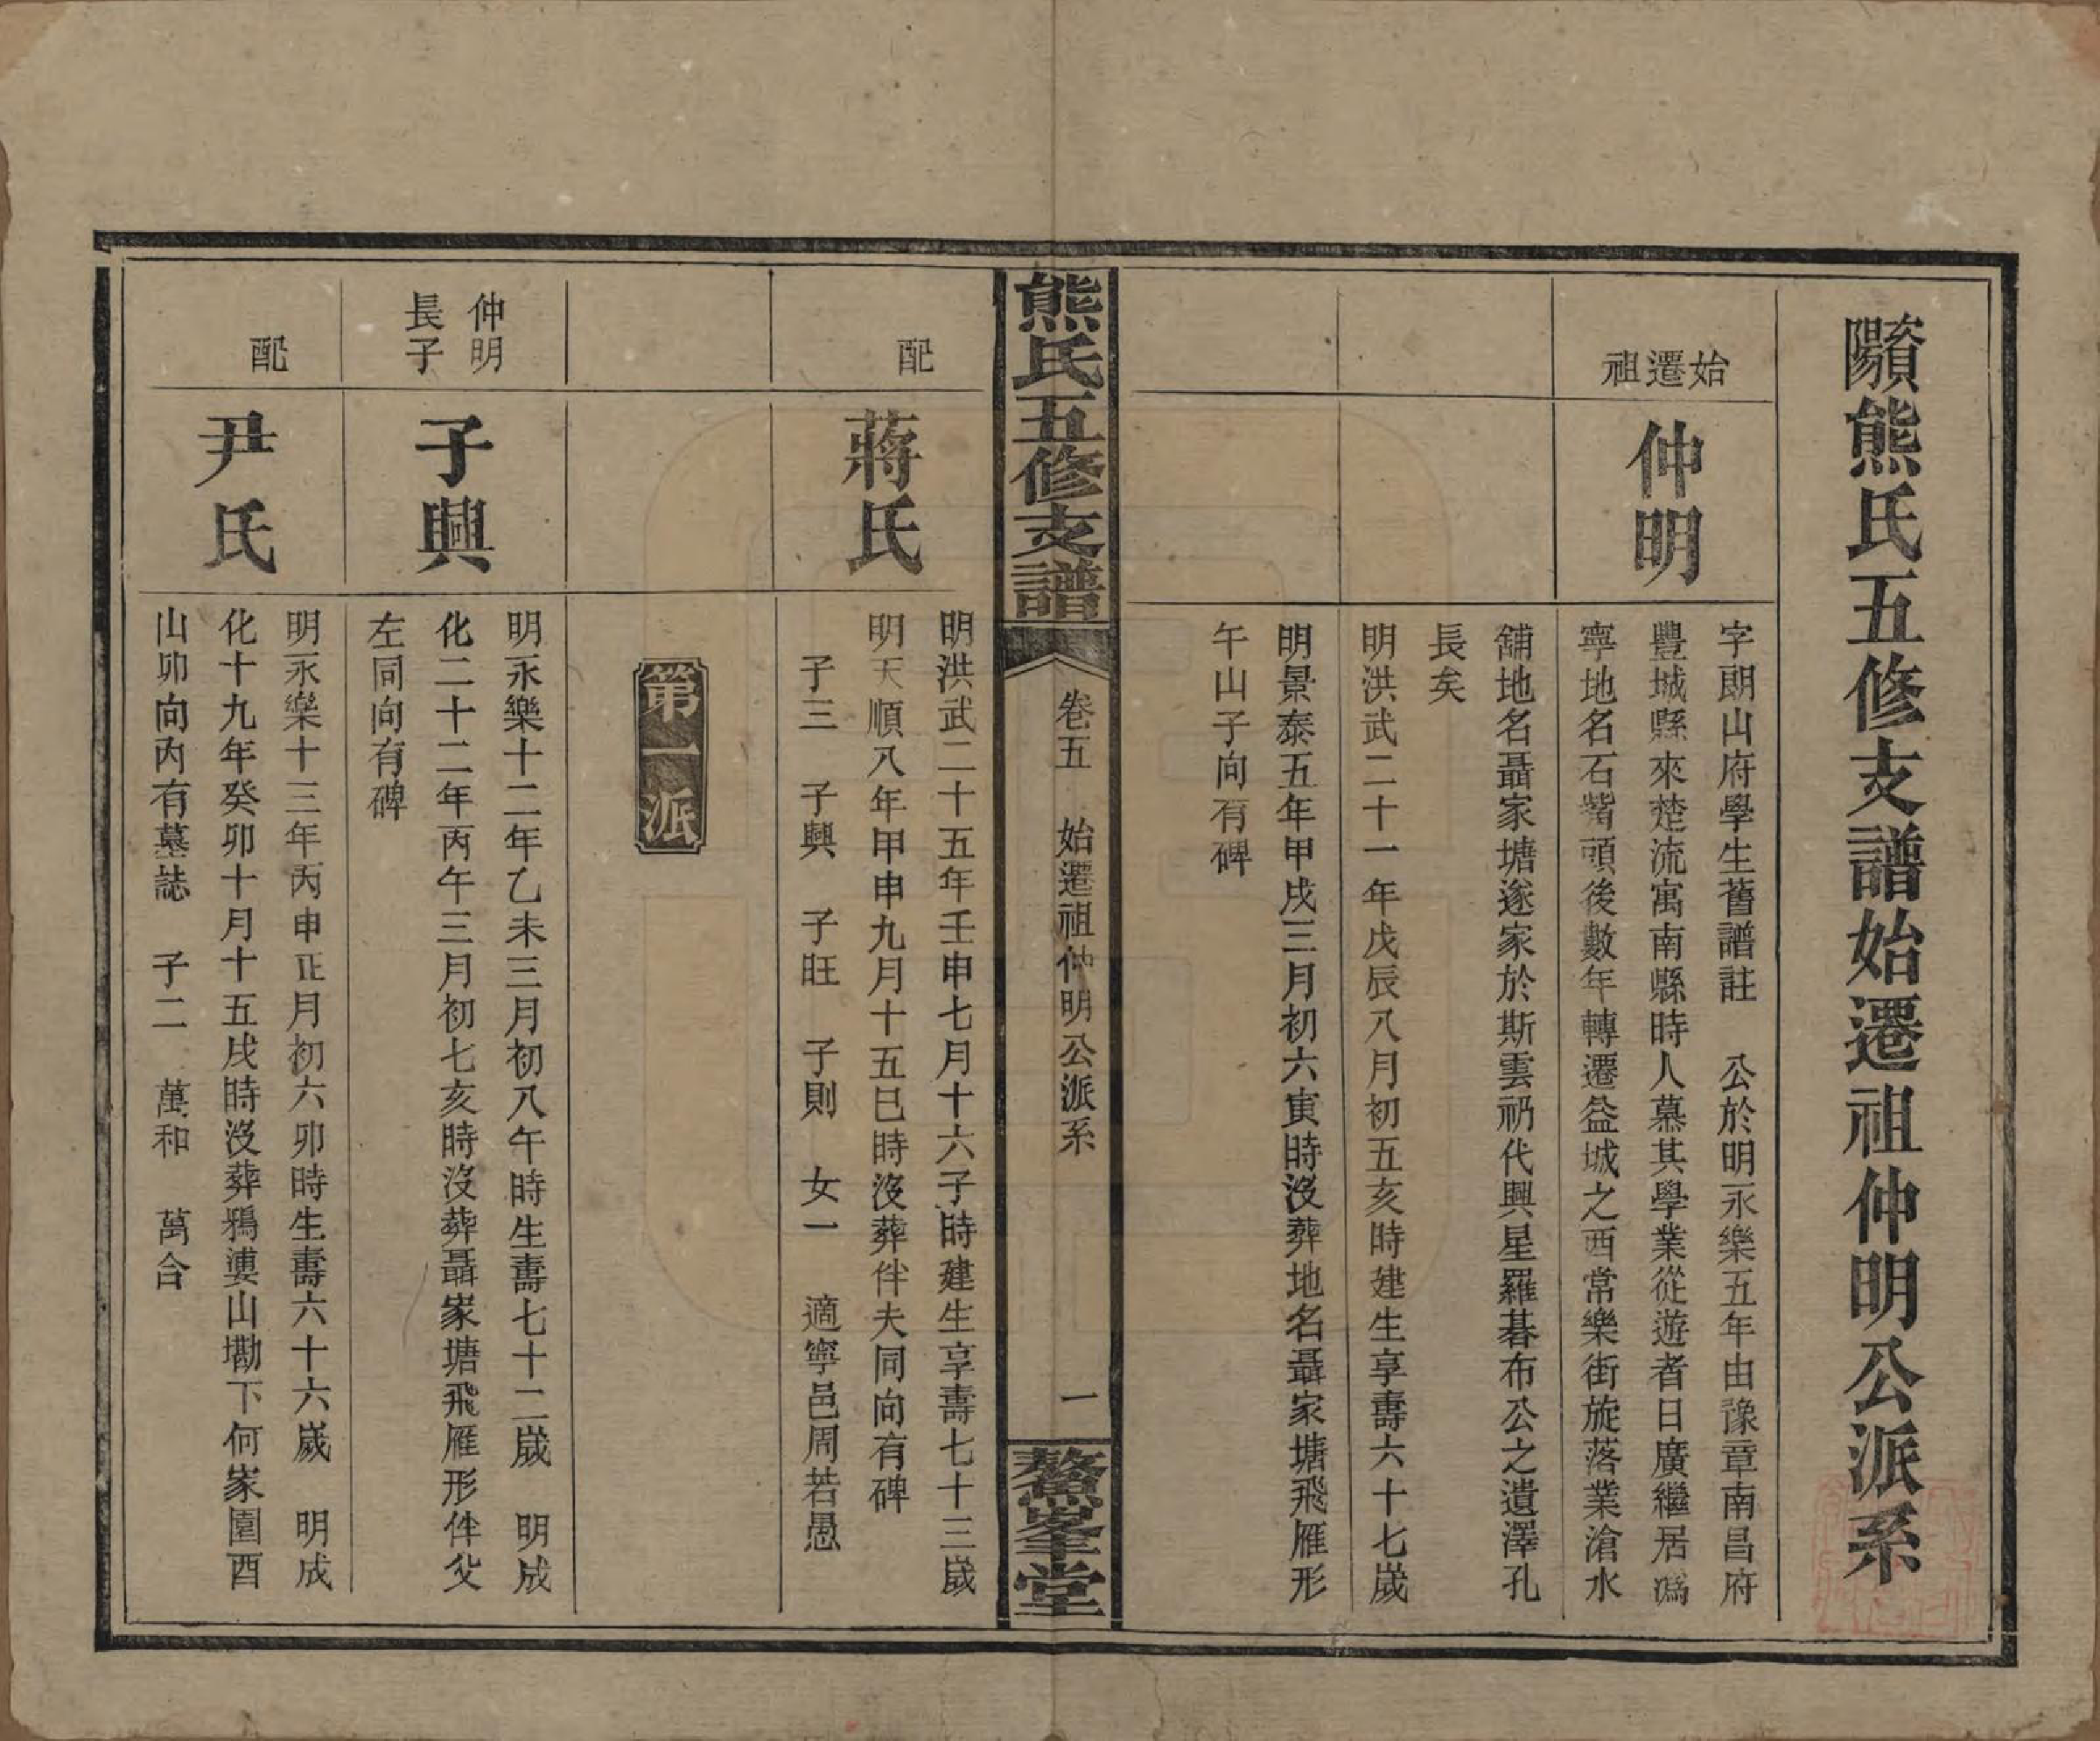 熊氏五修支譜始遷祖仲明公派系
始遷祖
仲明
字朗山府學生舊譜註　公於明永樂五年由豫章南昌府
豐城縣來楚流寓南縣時人慕其學業從遊者日廣繼居溈
寧地名石觜頭後數年轉遷益城之西常樂街旋落業滄水
舖地名聶家塘遂家於斯雲礽代興星羅碁布公之遺澤孔
長矣
明洪武二十一年戊辰八月初五亥時建生享壽六十七歲
明景泰五年甲戌三月初六寅時沒葬地名聶家塘飛雁形
午山子向有碑
熊氏五修支譜
卷五　始遷祖仲明公派系
一
堂
配
蔣氏
明洪武二十五年壬申七月十六子時建生享壽七十三歲
明天順八年甲申九月十五巳時沒葬伴夫同向有碑
子三　子興　子旺　子則　女一　適寧邑周若愚
第一派
仲明
長子
子興
明永樂十二年乙未三月初八午時生壽七十二歲　明成
化二十二年丙午三月初七亥時沒葬聶家塘飛雁形伴父
左同向有碑
配
尹氏
明永樂十三年丙申正月初六卯時生壽六十六歲　明成
化十九年癸卯十月十五戌時沒葬鴉漊山墈下何家園酉
山卯向內有墓誌　子二　萬和　萬合